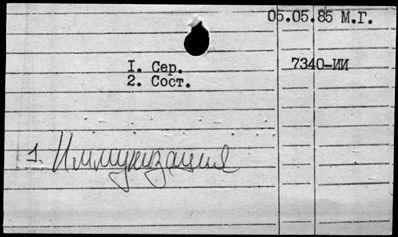 05.05.85 М.Г.
1. Сер. 7340-ИИ
2. Сост.
1. Иммунизация